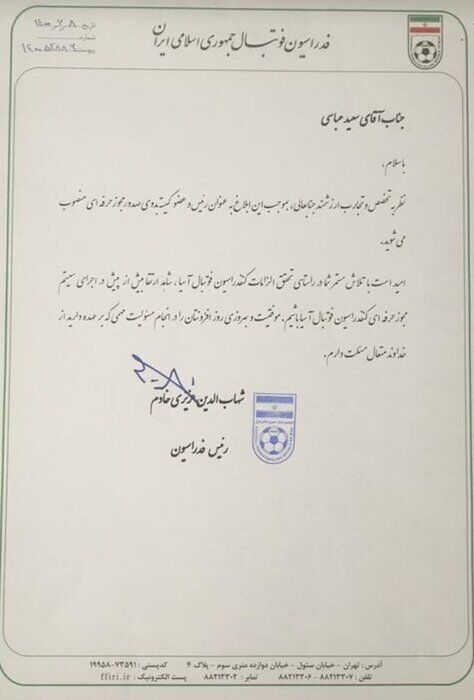 فدراسیون فوتبال جمهوری اسلامی ایران
تاریخ
شماره
پیوست
جناب آقای سعید عباسی
با سلام،
نظر به تخصص و تجارب ارزشمند جنابعالی، بموجب این ابلاغ به عنوان رئیس و عضو کمیته بدوی صدور مجوز حرفه ای منصوب
می شوید.
امید است با تلاش مستمر شما در راستای تحقق الزامات کنفدراسیون فوتبال آسیا، شاهد ارتقا بیش از پیش در اجرای سیستم
مجوز حرفه ای کنفدراسیون فوتبال آسیا باشیم. موفقیت و بهروزی روز افزونتان را در انجام مسئولیت مهمی که بر عهده دارید از
خداوند متعال مسئلت دارم.
شهاب الدین عزیزی خادم
رئیس فدراسیون
آدرس : تهران - خیابان سئول - خیابان دوازده متری سوم - پلاک ۴ کدپستی : ۷۳۵۹۱-۱۹۹۵۸
تلفن : ۷-۸۸۲۱۳۳۰۶ - ۸۸۲۱۳۳۰۶ نمابر : ۸۸۲۱۳۳۰۲ پست الکترونیک : ffiri.ir